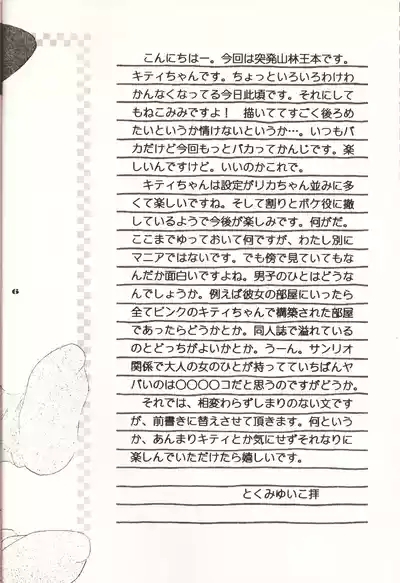 こんにちはー。今回は突発山林王本です。
キティちゃんです。ちょっといろいろわけわ
かんなくなってる今日此頃です。それにして
もねこみみですよ！　描いててすごく後ろめ
たいというか情けないというか…。いつもバ
カだけど今回もっとバカってかんじです。楽
しいんですけど。いいのかこれで。
キティちゃんは設定がリカちゃん並みに多
くて楽しいですね。そして割りとボケ役に徹
しているようで今後が楽しみです。何がだ。
ここまでゆっておいて何ですが、わたし別に
マニアではないです。でも傍で見ていてもな
んだか面白いですよね。男子のひとはどうな
んでしょうか。例えば彼女の部屋にいったら
全てピンクのキティちゃんで構築された部屋
であったらどうかとか。同人誌で溢れている
のとどっちがよいかとか。うーん。サンリオ
関係で大人の女のひとが持ってていちばんヤ
バいのは〇〇〇〇コだと思うのですがどうか。
それでは、相変わらずしまりのない文です
が、前書きに替えさせて頂きます。何という
か、あんまりキティとか気にせずそれなりに
楽しんでいただけたら嬉しいです。
とくみゆいこ拝
6